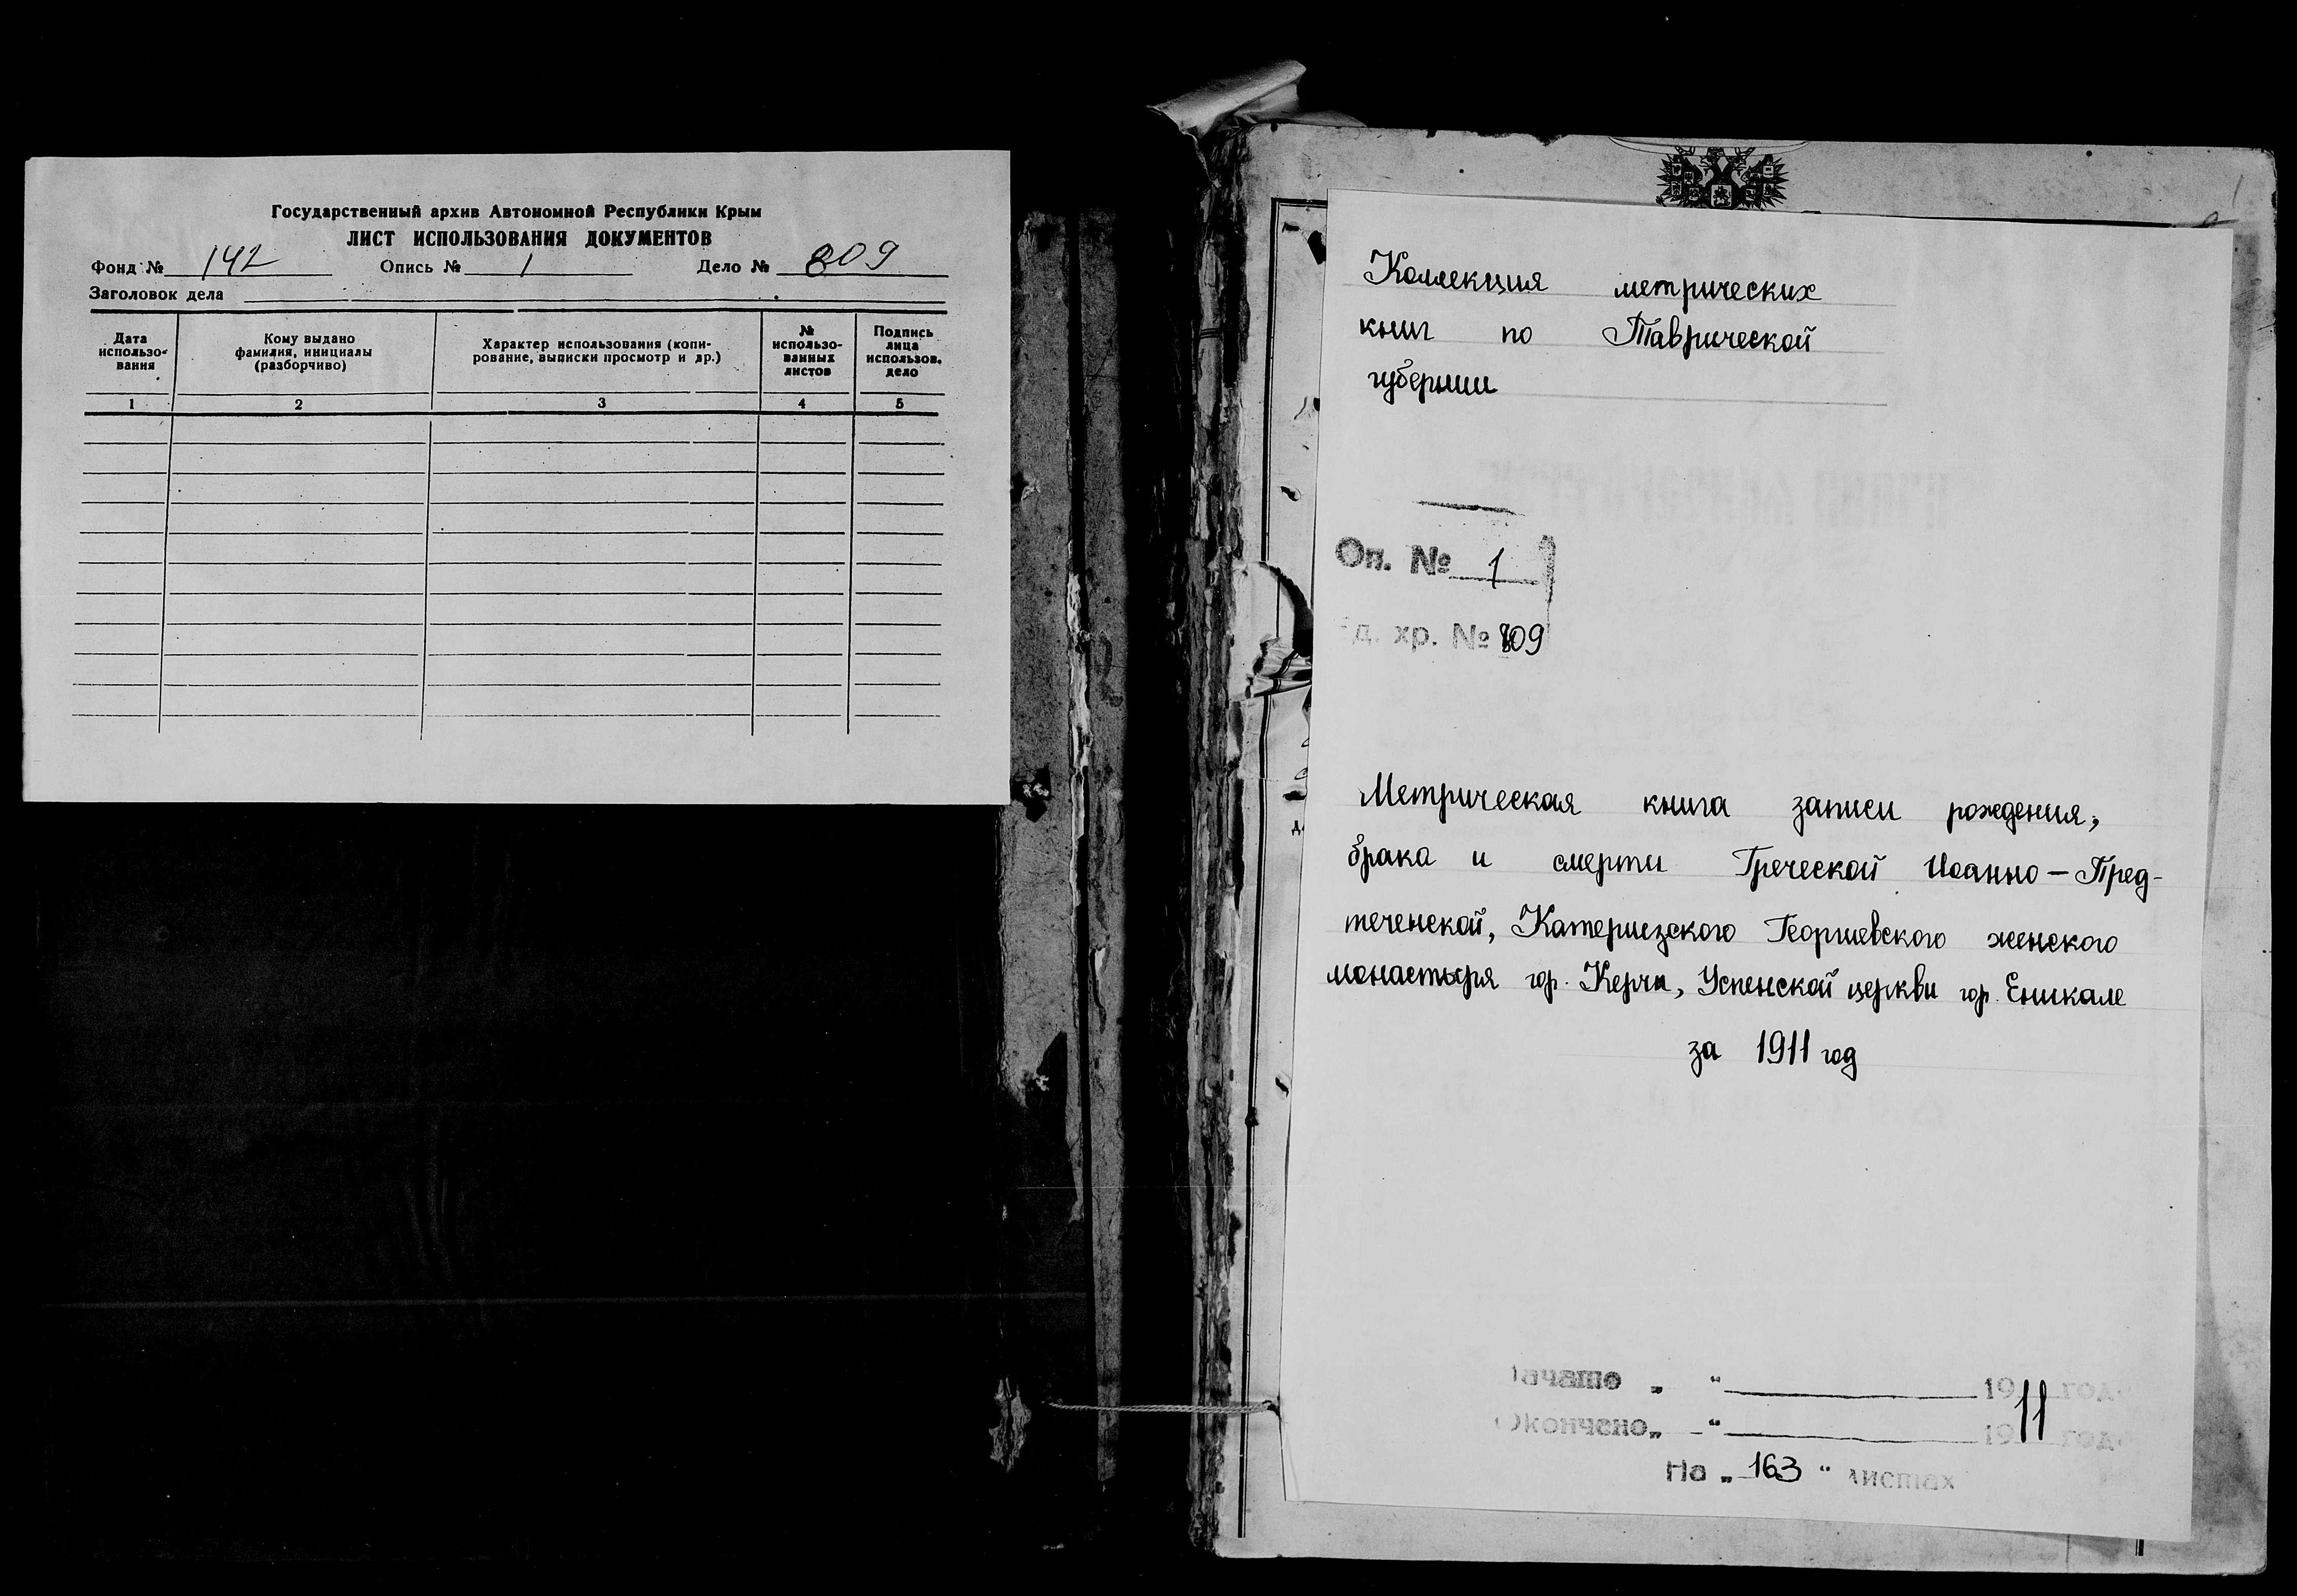 Государственный архив Автономной Республики Крым
ЛИСТ ИСПОЛЬЗОВАНИЯ ДОКУМЕНТОВ
Фонд № 142 Опись № 1 Дело № 809
Заголовок дела
Дата использо-вания
Кому выдано фамилия, инициалы (разборчиво)
Характер использования (копи-рование, выписки просмотр и др.)
№ использо-ванных листов
Подпись лица использов. дело
1 2 3 4 5
Коллекция метрических
книг по Таврической
губернии
Оп. № 1
д. хр. № 809
Метрическая книга записи рождения,
брака и смерти Греческой Иоанно-Пред-
теченской, Катериезского Георгиевского женского
монастыря гор. Керчи, Успенской церкви гор. Еникале
за 1911 год
Начато „ “ 1911 год
Окончено „ “ 1911 год
На „ 163 “ листах